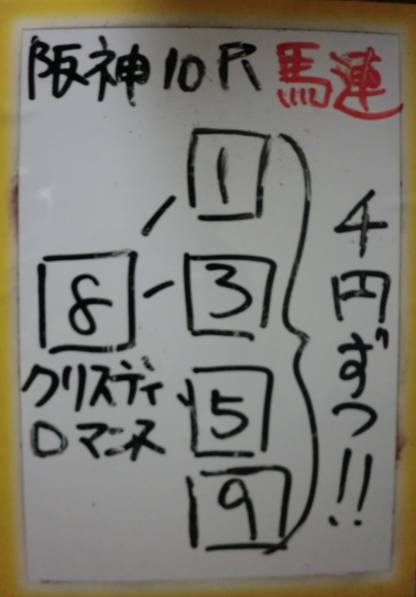 阪神10R 馬連
1
8 3
クリスティ 5
ロマンス 9
千円ずつ!!